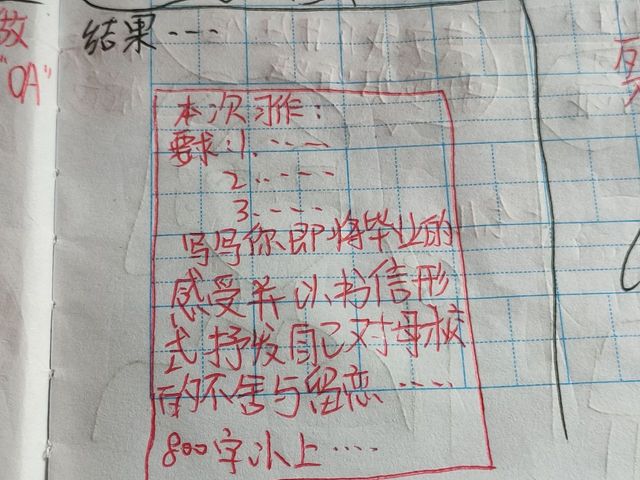 故
"OA"
结果····
本次习作：
要求：1.·····
2.·····
3.····
写写你即将毕业的
感受并以书信形
式抒发自己对母校
的不舍与留恋·····
800字以上····